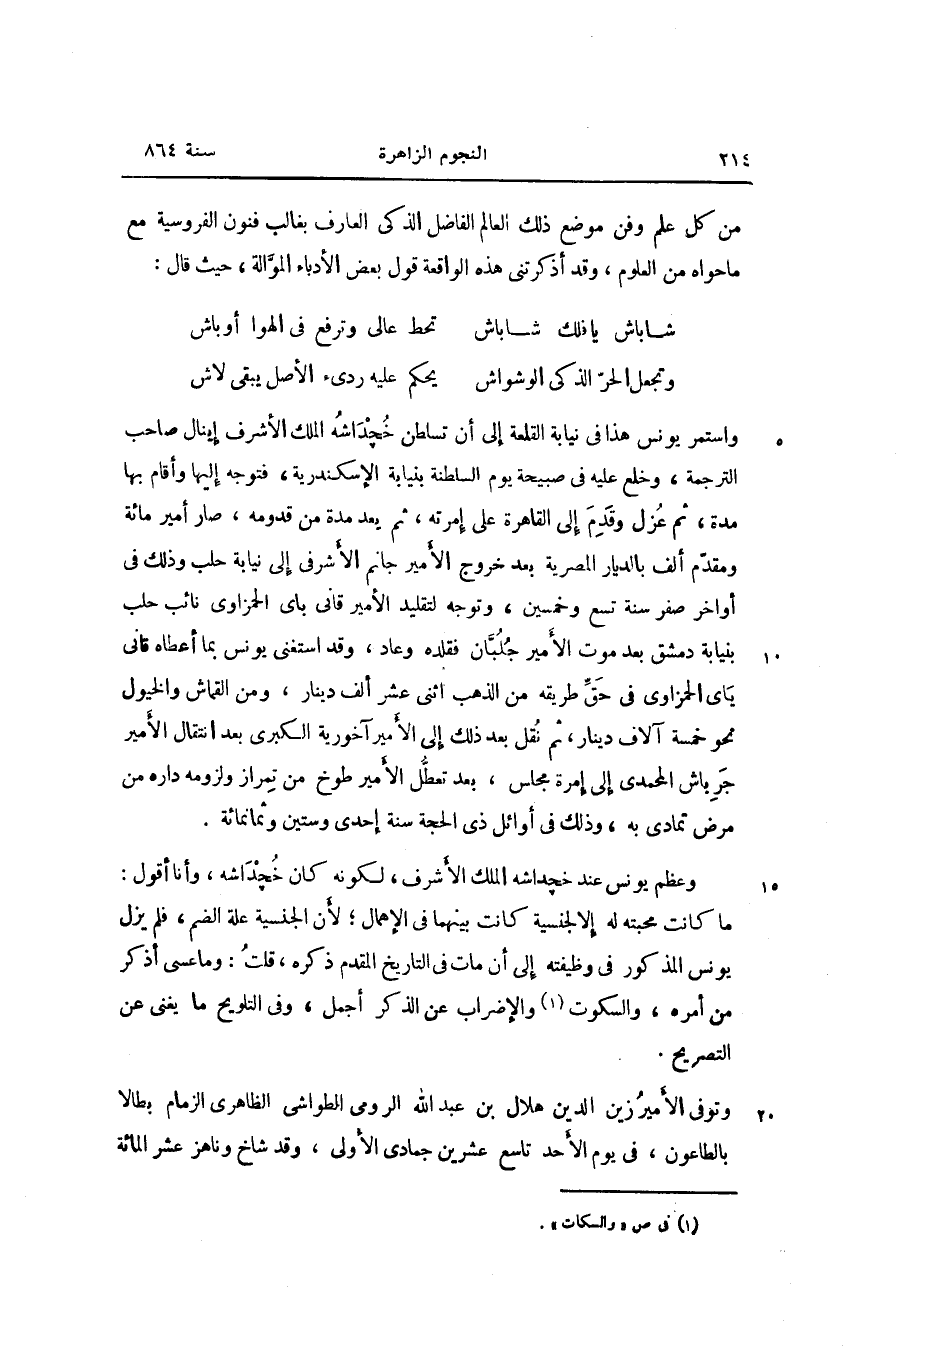 ٢١٤ النجوم الزاهرة سنة ٨٦٤
من كل علم وفن موضع ذلك العالم الفاضل الذكى العارف بغالب فنون الفروسية مع
ماحواه من العلوم ، وقد أذكرتنى هذه الواقعة قول بعض الأدباء الموَّالة ، حيث قال :
شـاباش يافلك شـاباش تحط عالى وترفع فى الهوا أوباش
وتجعل الحرّ الذكى الوشواش يحكم عليه ردىء الأصل يبقى لاش
٥ واستمر يونس هذا فى نيابة القلعة إلى أن تسلطن خُجْدَاشُه الملك الأشرف إينال صاحب
الترجمة ، وخلع عليه فى صبيحة يوم السلطنة بنيابة الإسكندرية ، فتوجه إليها وأقام بها
مدة ، ثم عُزل وقَدِمَ إلى القاهرة على إمرته ، ثم بعد مدة من قدومه ، صار أمير مائة
ومقدّم ألف بالديار المصرية بعد خروج الأمير جانم الأشرفى إلى نيابة حلب وذلك فى
أواخر صفر سنة تسع وخمسين ، وتوجه لتقليد الأمير قانى باى الحمزاوى نائب حلب
١٠ بنيابة دمشق بعد موت الأمير جُلُبَّان فقلده وعاد ، وقد استغنى يونس بما أعطاه قانى
بَاى الحمزاوى فى حَقِّ طريقه من الذهب اثنى عشر ألف دينار ، ومن القماش والخيول
نحو خمسة آلاف دينار ، ثم نُقل بعد ذلك إلى الأمير آخورية الكبرى بعد انتقال الأمير
جَرِباش المحمدى إلى إمرة مجلس ، بعد تعطُّل الأمير طوخ من تِمراز ولزومه داره من
مرض تمادى به ، وذلك فى أوائل ذى الحجة سنة إحدى وستين وثمانمائة .
١٥ وعظم يونس عند خجداشه الملك الأشرف ، لكونه كان خُجْدَاشه ، وأنا أقول :
ما كانت محبته له إلا لجنسية كانت بينهما فى الإهمال ؛ لأن الجنسية علة الضم ، فلم يزل
يونس المذكور فى وظيفته إلى أن مات فى التاريخ المقدم ذكره ، قلتُ : وماعسى أذكر
من أمره ، والسكوت (١) والإضراب عن الذكر أجمل ، وفى التلويح ما يغنى عن
التصريح .
٢٠ وتوفى الأميرُ زين الدين هلال بن عبد الله الرومى الطواشى الظاهرى الزمام بطالا
بالطاعون ، فى يوم الأحد تاسع عشرين جمادى الأولى ، وقد شاخ وناهز عشر المائة
(١) فى ص « والسكات » .